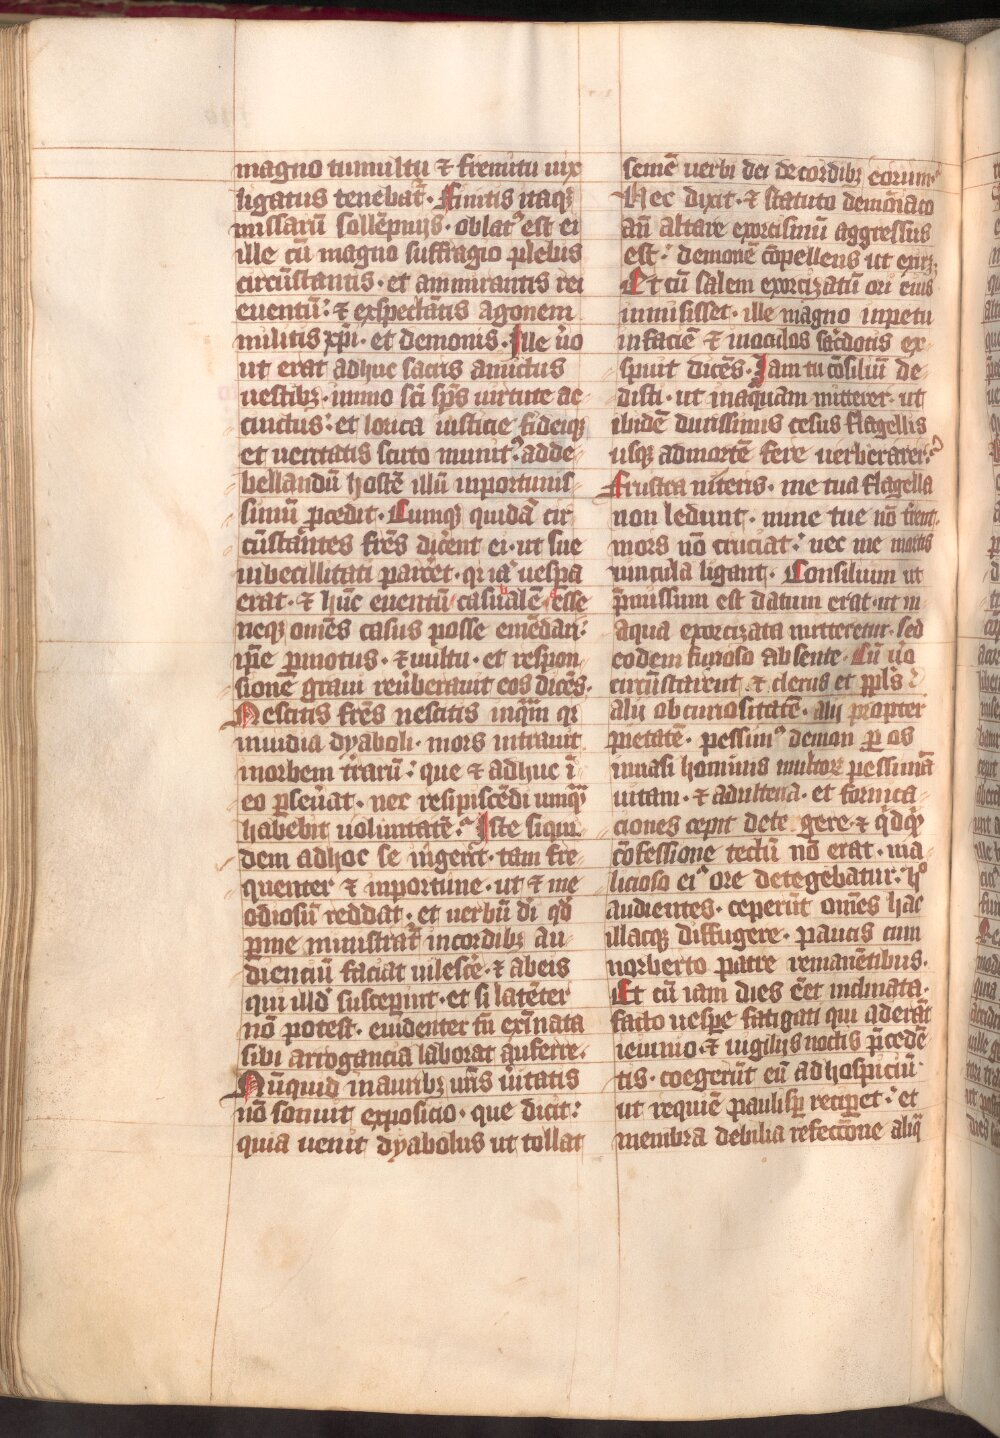 magno tumultu ⁊ fremitu uix
ligatus tenebat᷑. Finitis itaqꝫ
missarū sollēpnijs. oblatꝰ est ei
ille cū magno suffragio plebis
circūstantis. et ammirantis rei
euentū: ⁊ exspectātis agonem
militis xp̄i. et demonis. Ille ůo
ut erat adhuc sacris amictus
uestibꝫ. immo sc̄i sp̄s uirtute ac-
cinctus: et lorica iusticie fideiqꝫ
et ueritatis scuto munitꝰ. adde-
bellandū hostē illū inportunis-
simū ꝓcedit. Cumqꝫ quidā cir
cūstantes frēs dicerent ei. ut sue
inbecillitati parcet. qr ia uespa
erat. ⁊ hūc euentū casualē esse
neqꝫ om̄es casus posse emēdari:
ip̄e ꝑmotus. ⁊ uultu. et respon-
sione graui reůberauit eos dicēs.
Nescitis frēs nescitis inqͣm qr
inuidia dyaboli. mors intrauit
in orbem trarū: que ⁊ adhuc ī
eo ꝑseůat. nec resipiscēdi umqͣ
habebit uoluntatē. Iste siqui-
dem adhoc se ingerit. tam fre-
quenter ⁊ inportune. ut ⁊ me
odiosū reddat. et uerbū di qd
ꝑ me ministrat᷑ in cordibꝫ au-
dienciū faciat uilescē. ⁊ abeis
qui illd susceꝑint. et si latēter
nō potest. euidenter tn̄ exīnata
sibi arrogancia laborat auferre.
Nūquid in auribꝫ ur̄is ůitatis
nō sonuit exposicio. que dicit:
quia uenit dyabolus ut tollat
semē uerbi dei de cordibꝫ eorum.
Hec dixit. ⁊ statuto demoniaco
an̄ altare exorcismū aggressus
est: demonē cōpellens ut exiret.
Et cū salem exorcizatū ori eius
inmisisset. ille magno inpetu
in faciē ⁊ in oculos sac̄dotis ex-
spuit dicēs. Iam tu cōsiliū de-
disti. ut in aquam mitterer. ut
ibidē durissimis cesus flagellis
usqꝫ ad mortē fere uerberarer.
Frustra niteris. me tua flagella
non ledunt. mine tue nō trent.
mors nō cruciat: nec me mortis
uincula ligant. Consilium ut
p̄missum est datum erat. ut in
aqua exorcizata mitteretur. sed
eodem furioso absente. Cū ůo
circūstarent ⁊ clerus et pplꝰs
alij ob curiositatē. alij propter
pietatē. pessimꝰ demon ꝑ os
inuasi hominis multorꝫ pessimā
uitam. ⁊ adulteria. et fornica-
ciones cepit dete gere. ⁊ qͥdqͥd
cōfessione tectū nō erat. ma-
licioso eiꝰ ore detegebatur. hͦ
audientes. ceperūt om̄es hac
illacqꝫ diffugere. paucis cum
norberto patre remanētibus.
Et cū iam dies eēt inclinata.
facto uespe fatigati qui aderāt
ieiunio. ⁊ uigilijs noctis p̄cedē
tis. coegerūt eū ad hospiciū
ut requiē paulisꝑ reciꝑet. et
membra debilia refectione aliqͣ